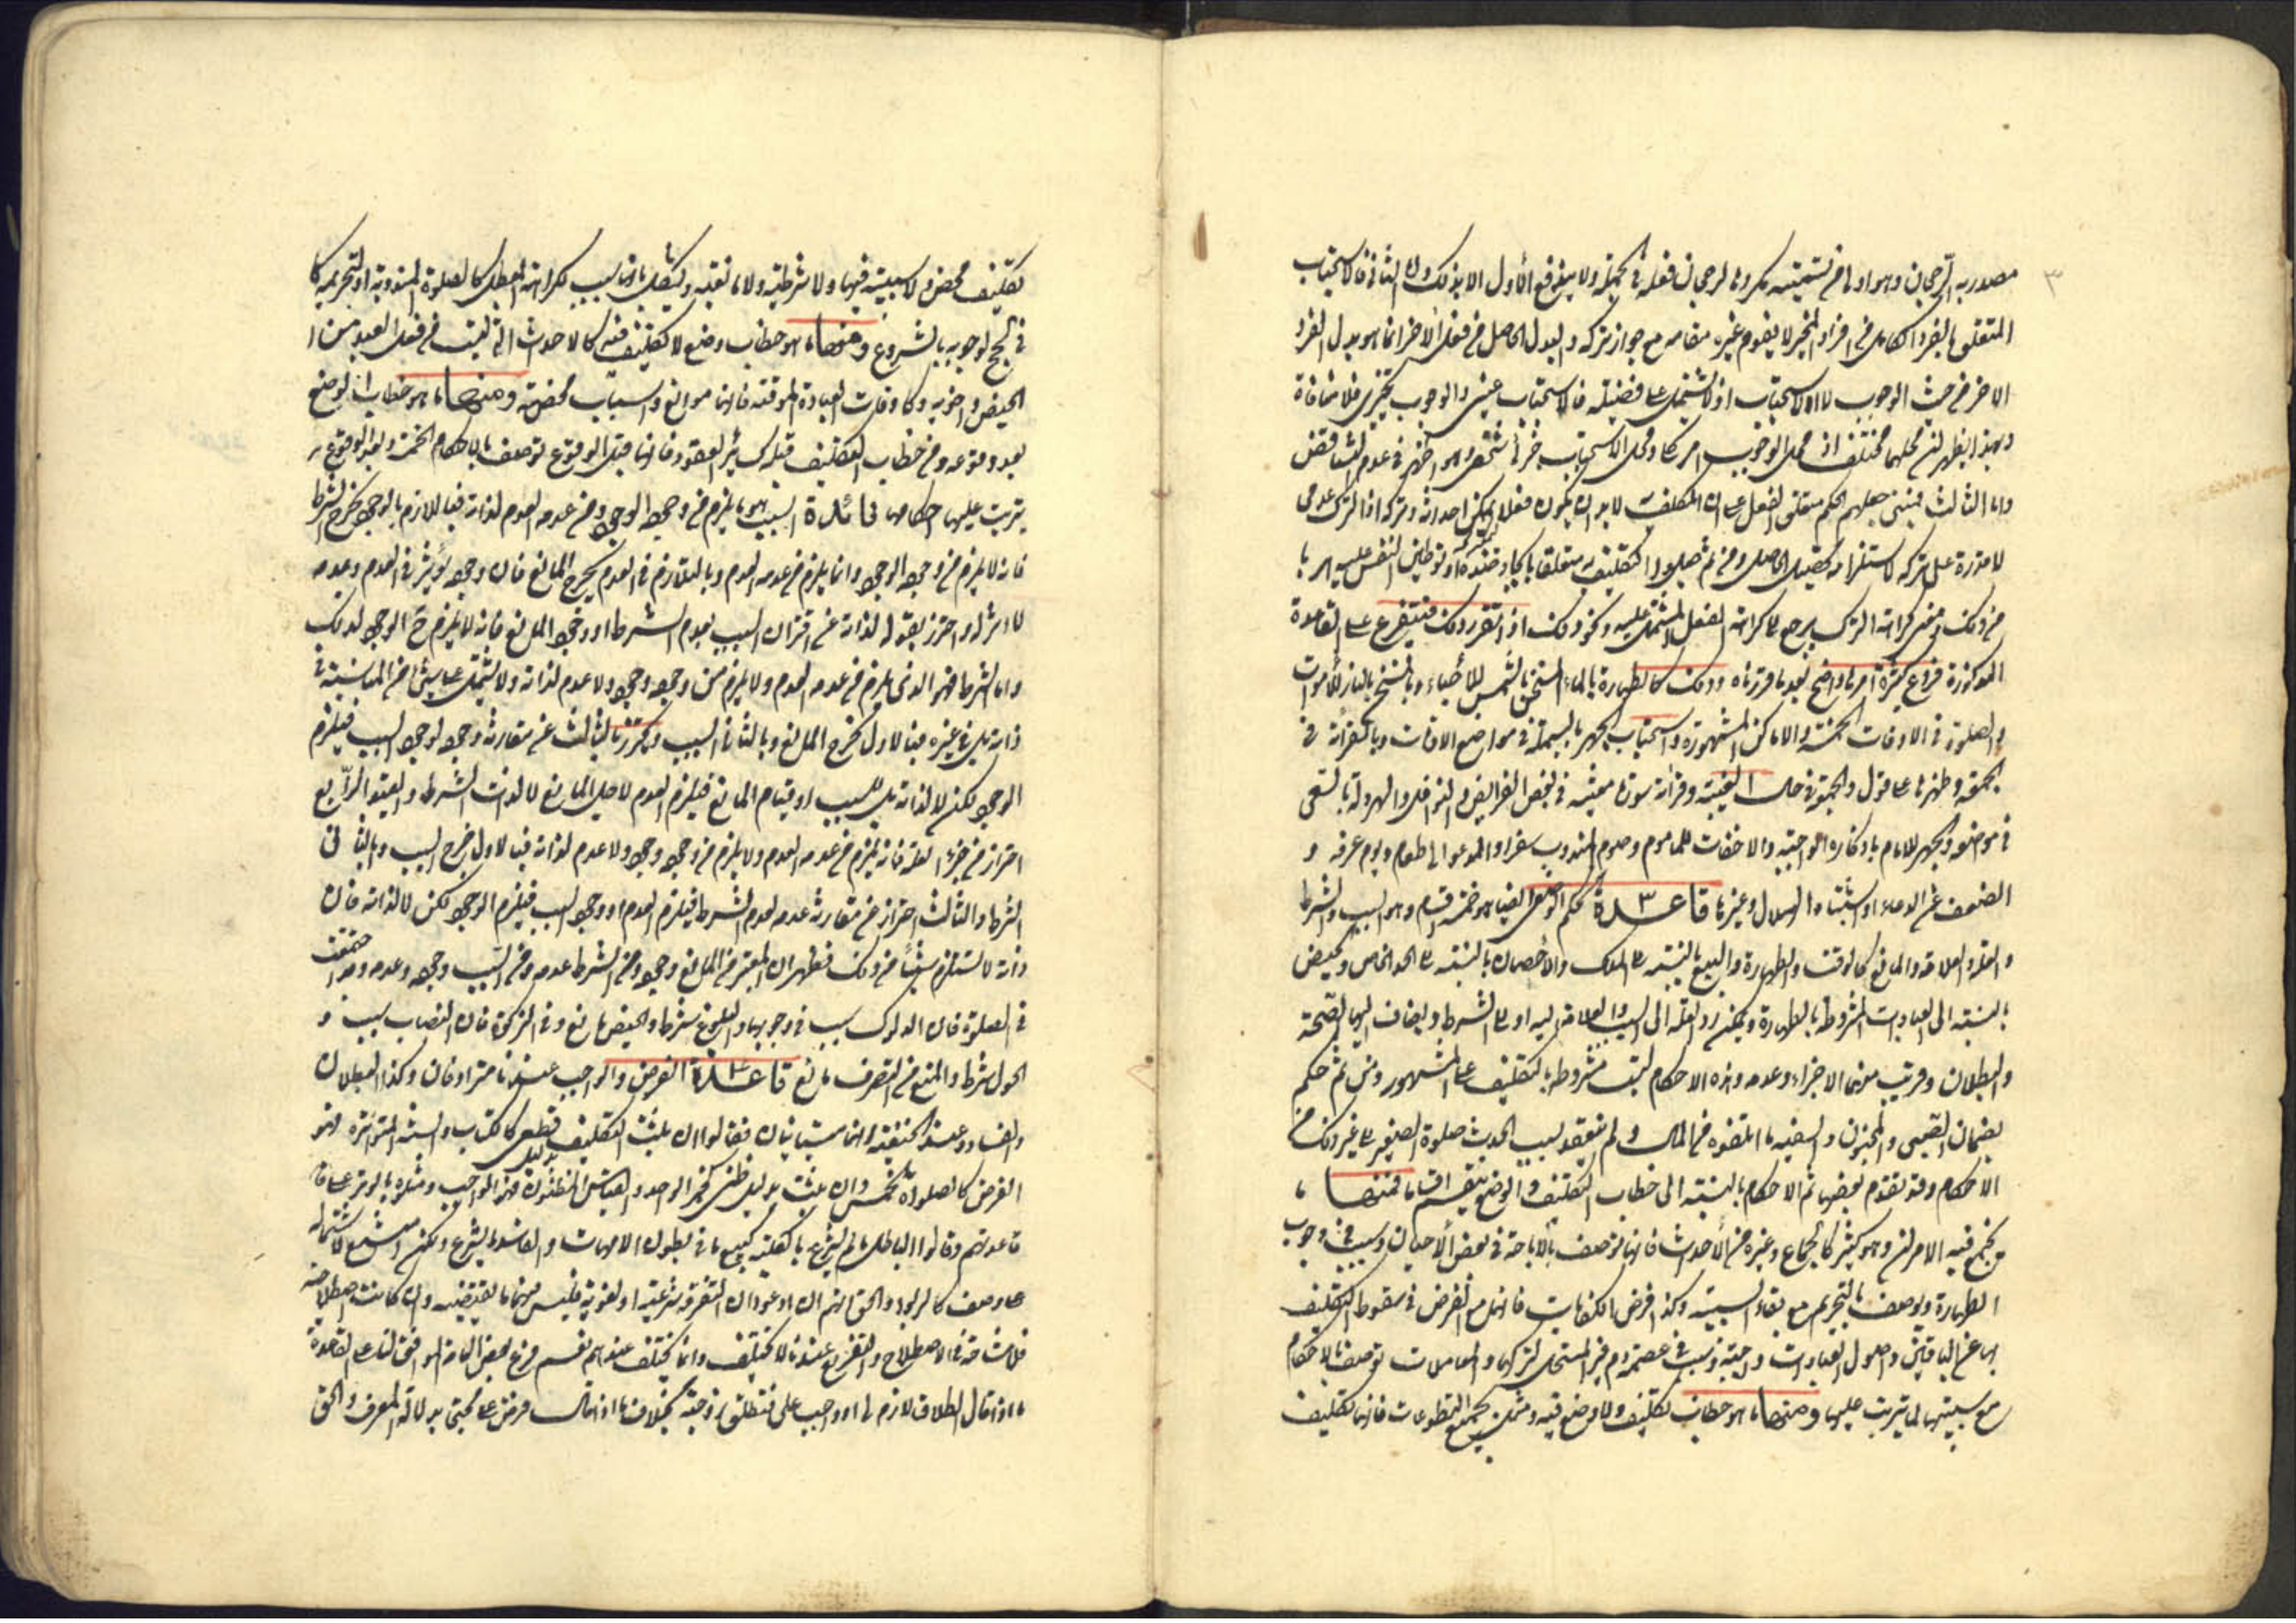 ٣
مصدريه الرجحان وهو اولى من تسميته مكروها لرجحان فعله في الجملة ولا يندفع الأول الا بذلك وان الثاني فالاستحباب
المتعلق بالفرد الكامل من افراد المخير لا يقوم غيره مقامه مع جواز تركه والبدل الحاصل من فعل الآخر انما هو بدل الفرد
الاخر من حيث الوجوب لا الاستحباب اذ لا يشتمل على فضيلة فالاستحباب عيني والوجوب تخييري فلا منافاة
وبهذا يظهر ان محلهما مختلف اذ محل الوجوب امر كلي ومحل الاستحباب جزئي شخصي وهو اظهر في عدم التناقض
واما الثالث فبنى جعلهم الحكم متعلق الفعل على ان المكلف به لا بد ان يكون فعلا يمكن احداثه وتركه اذ الترك عدمي
لا قدرة على تركه لاستلزامه تحصيل الحاصل ومن ثم جعلوا التكليف به متعلقا بايجاد ضده او توطين النفس عليه او ما
من ذلك ومعنى كراهة الترك يرجع الى كراهة الفعل المشتمل عليه ونحو ذلك اذا تقرر ذلك فيتفرع على القاعدة
المذكورة فروع كثيرة امرها واضح بعد ما قررناه وذلك كالطهارة بالماء المسخن بالشمس للأحياء وبالمسخن بالنار للأموات
والصلوة في الاوقات الخمسة والاماكن المشهورة واستحباب الجهر بالبسملة في مواضع الاخفات وبالقرائة في
الجمعة وظهرها على قول والجمعة في حال الغيبة وقرائة سورة معينة في بعض الفرايض والنوافل والهرولة بالسعى
في موضعه والجهر للامام باذكاره الواجبة والاخفات للماموم وصوم المندوب سفرا والمدعو الى طعام ويوم عرفه و
الضعف عن الدعاء او اشتباه الهلال وغيرها قاعدة ٣ الحكم الوضعى ايضا هو خمسة اقسام وهو السبب والشرط
والعلة والعلامة والمانع كالوقت والطهارة والبيع بالنسبة الى الملك والاحصان بالنسبة الى الحد الخاص والحيض
بالنسبة الى العبادات المشروطة بالطهارة ويمكن رد العلة الى السبب والعلامة اليه او الى الشرط ويضاف اليها الصحة
والبطلان وقريب منهما الاجزاء وعدمه وهذه الاحكام ليست مشروطة بالتكليف على المشهور ومن ثم حكم
بضمان الصبي والمجنون والسفيه ما اتلفوه من المال ولم ينعقد بسبب الحدث صلوة الصغير الى غير ذلك من
الاحكام وقد تقدم بعضها ثم الاحكام بالنسبة الى خطاب التكليف والوضع ينقسم اقساما فمنها ما
يجتمع فيه الامران وهو كثير كالجماع وغيره من الاحداث فانها توصف بالاباحة في بعض الاحيان وسبب في وجوب
الطهارة ويوصف بالتحريم مع بقاء السببية وكذا فرض الكفايات فانها مع الفرض في سقوط التكليف
بها عن الباقين واصول العبادات واجبة وسبب في عصمة دم غير المستحل لتركها والمعاملات توصف بالاحكام
مع سببيتها لما يترتب عليها ومنها ما هو خطاب تكليف ولا وضع فيه ومثل بجميع التطوعات فانها تكليف
تكليف محض ولا سببية فيها ولا شرطية ولا مانعية ويشكل بانها سبب لكراهة ابطال الصلوة المندوبة او لتحريمه كما
في الحج لوجوبه بالشروع ومنها ما هو خطاب وضع لا تكليف فيه كالاحداث التي ليست من فعل العبد من ا
الحيض واضرابه وكاوقات العبادة الموقتة فانها موانع واسباب محضة ومنها ما هو خطاب الوضع
بعد وقوعه ومن خطاب التكليف قبله كسائر العقود فانها قبل الوقوع توصف بالاحكام الخمسة وبعد الوقوع
يترتب عليها احكامها فائدة السبب هو ما يلزم من وجوده الوجود ومن عدمه العدم لذاته فباللازم بالوجود يخرج الشرط
فانه لا يلزم من وجوده الوجود وانما يلزم من عدمه العدم وباللازم في العدم يخرج المانع فان وجوده يؤثر في العدم وعدمه
لا اثر له واحترز بقوله لذاته عن اقتران السبب بعدم الشرط او وجود المانع فانه لا يلزم ح الوجود لذلك
واما الشرط فهو الذي يلزم من عدمه العدم ولا يلزم من وجوده وجود ولا عدم لذاته ولا يشتمل على شيء من المناسبة في
ذاته بل في غيره فبالاول يخرج المانع وبالثاني السبب ويحترز بالثالث عن مقارنة وجوده لوجود السبب فيلزم
الوجود لكن لا لذاته بل للسبب او قيام المانع فيلزم العدم لاجل المانع لا لذات الشرط والقيد الرابع
احتراز من جزء العلة فانه يلزم من عدمه العدم ولا يلزم من وجوده وجود ولا عدم لذاته فبالاول خرج السبب وبالثاني
الشرط والثالث احتراز من مقارنة عدمه لعدم الشرط فيلزم العدم او وجود السبب فيلزم الوجود لكن لا لذاته فان
ذاته لا تستلزم شيئا من ذلك فظهر ان المعتبر من المانع وجوده ومن الشرط عدمه ومن السبب وجوده وعدمه وقد اجتمعت
في الصلوة فان الدلوك سبب في وجوبها والبلوغ شرط والحيض مانع وفي الزكوة فان النصاب سبب و
الحول شرط والمنع من التصرف مانع قاعدة ٤ الفرض والواجب عندنا مترادفان وكذا البطلان
والفساد وعند الحنفية انهما متباينان فقالوا ان ثبت التكليف بدليل قطعى كالكتاب والسنة المتواترة فهو
الفرض كالصلوات الخمس وان ثبت بدليل ظنى كخبر الواحد والقياس المظنون فهو الواجب ومثلوه بالوتر على قا
قاعدتهم وقالوا الباطل ما لم يشرع بالكلية كبيع ما في بطون الامهات والفاسد ما يشرع ولكن امتنع لاشتماله
على وصف كالربوا والحق انهم ان ادعوا ان التفرقة شرعية او لغوية فليس فيهما ما يقتضيه وان كانت اصطلاحية
فلا مشاحة في الاصطلاح والتفريع عندنا لا يختلف وانما يختلف عندهم نعم فرع بعض العامة الموافق لنا على القاعدة
ما اذا قال الطلاق لازم لي او واجب على فتطلق زوجته بخلاف ما اذا قال فرض على لحيثي بدلالة العرف والحق